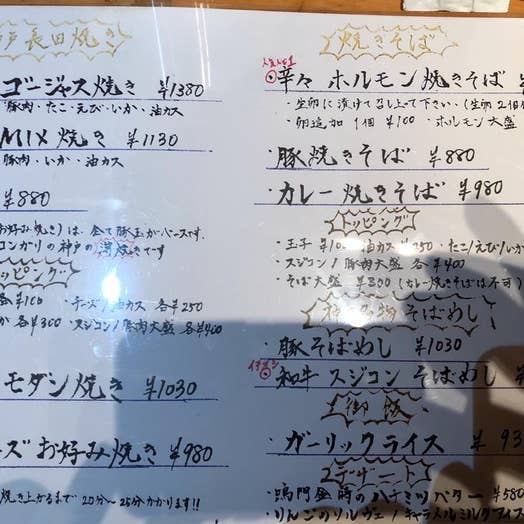 戸長田焼き
ゴージャス焼き ¥1380
豚肉・たこ・えび・いか・油カス
MIX焼き ¥1130
豚肉・いか・油カス
¥880
お好み焼き)は、全て豚玉がベースです。
コンガリの神戸の薄焼きです
ッピング
¥100 ・チーズ/油カス 各¥250
か 各¥300 ・スジコン/豚肉大盛 各¥400
モダン焼き ¥1030
ーズお好み焼き ¥980
焼き上がるまで 20分〜25分かかります!!
焼きそば
人気No1
辛々ホルモン焼きそば
・生卵に漬けて召し上って下さい・(生卵2個
・卵追加1個 ¥100 ・ホルモン大盛
・豚焼きそば ¥880
・カレー焼きそば ¥980
トッピング
・玉子 ¥10 ・油カス ¥250 ・たこ/えび/いか
・スジコン/豚肉大盛 各¥400
・そば大盛 ¥300 (カレー焼きそばは不可)
名物そばめし
・豚そばめし ¥1030
イチオシ
和牛スジコンそばめし ¥
御飯
・ガーリックライス ¥93
デザート
・鳴門金時のハチミツバター ¥580
・りんごのソルヴェ/キャラメルミルクアイス